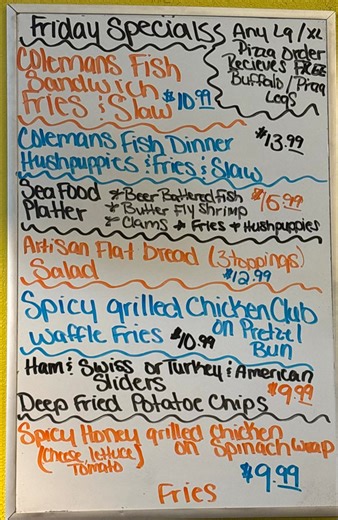 Friday Specials
Any Lg/XL
Pizza Order
Recieves FREE
Buffalo/
Legs
Colemans Fish
Sandwich
Fries & Slaw $10.99
Colemans Fish Dinner $13.99
Hushpuppies & Fries & Slaw
Sea Food * Beer Battered fish $16.99
Platter * Butter Fly Shrimp
* Clams * Fries * Hushpuppies
Artisan Flat bread (3 toppings)
Salad $12.99
Spicy grilled Chicken Club
Waffle Fries $10.99 on Pretzel
Bun
Ham & Swiss or Turkey & American
Sliders $9.99
Deep Fried Potatoe Chips
Spicy Honey grilled chicken
(cheese, lettuce, on Spinach wrap
Tomato $9.99
Fries